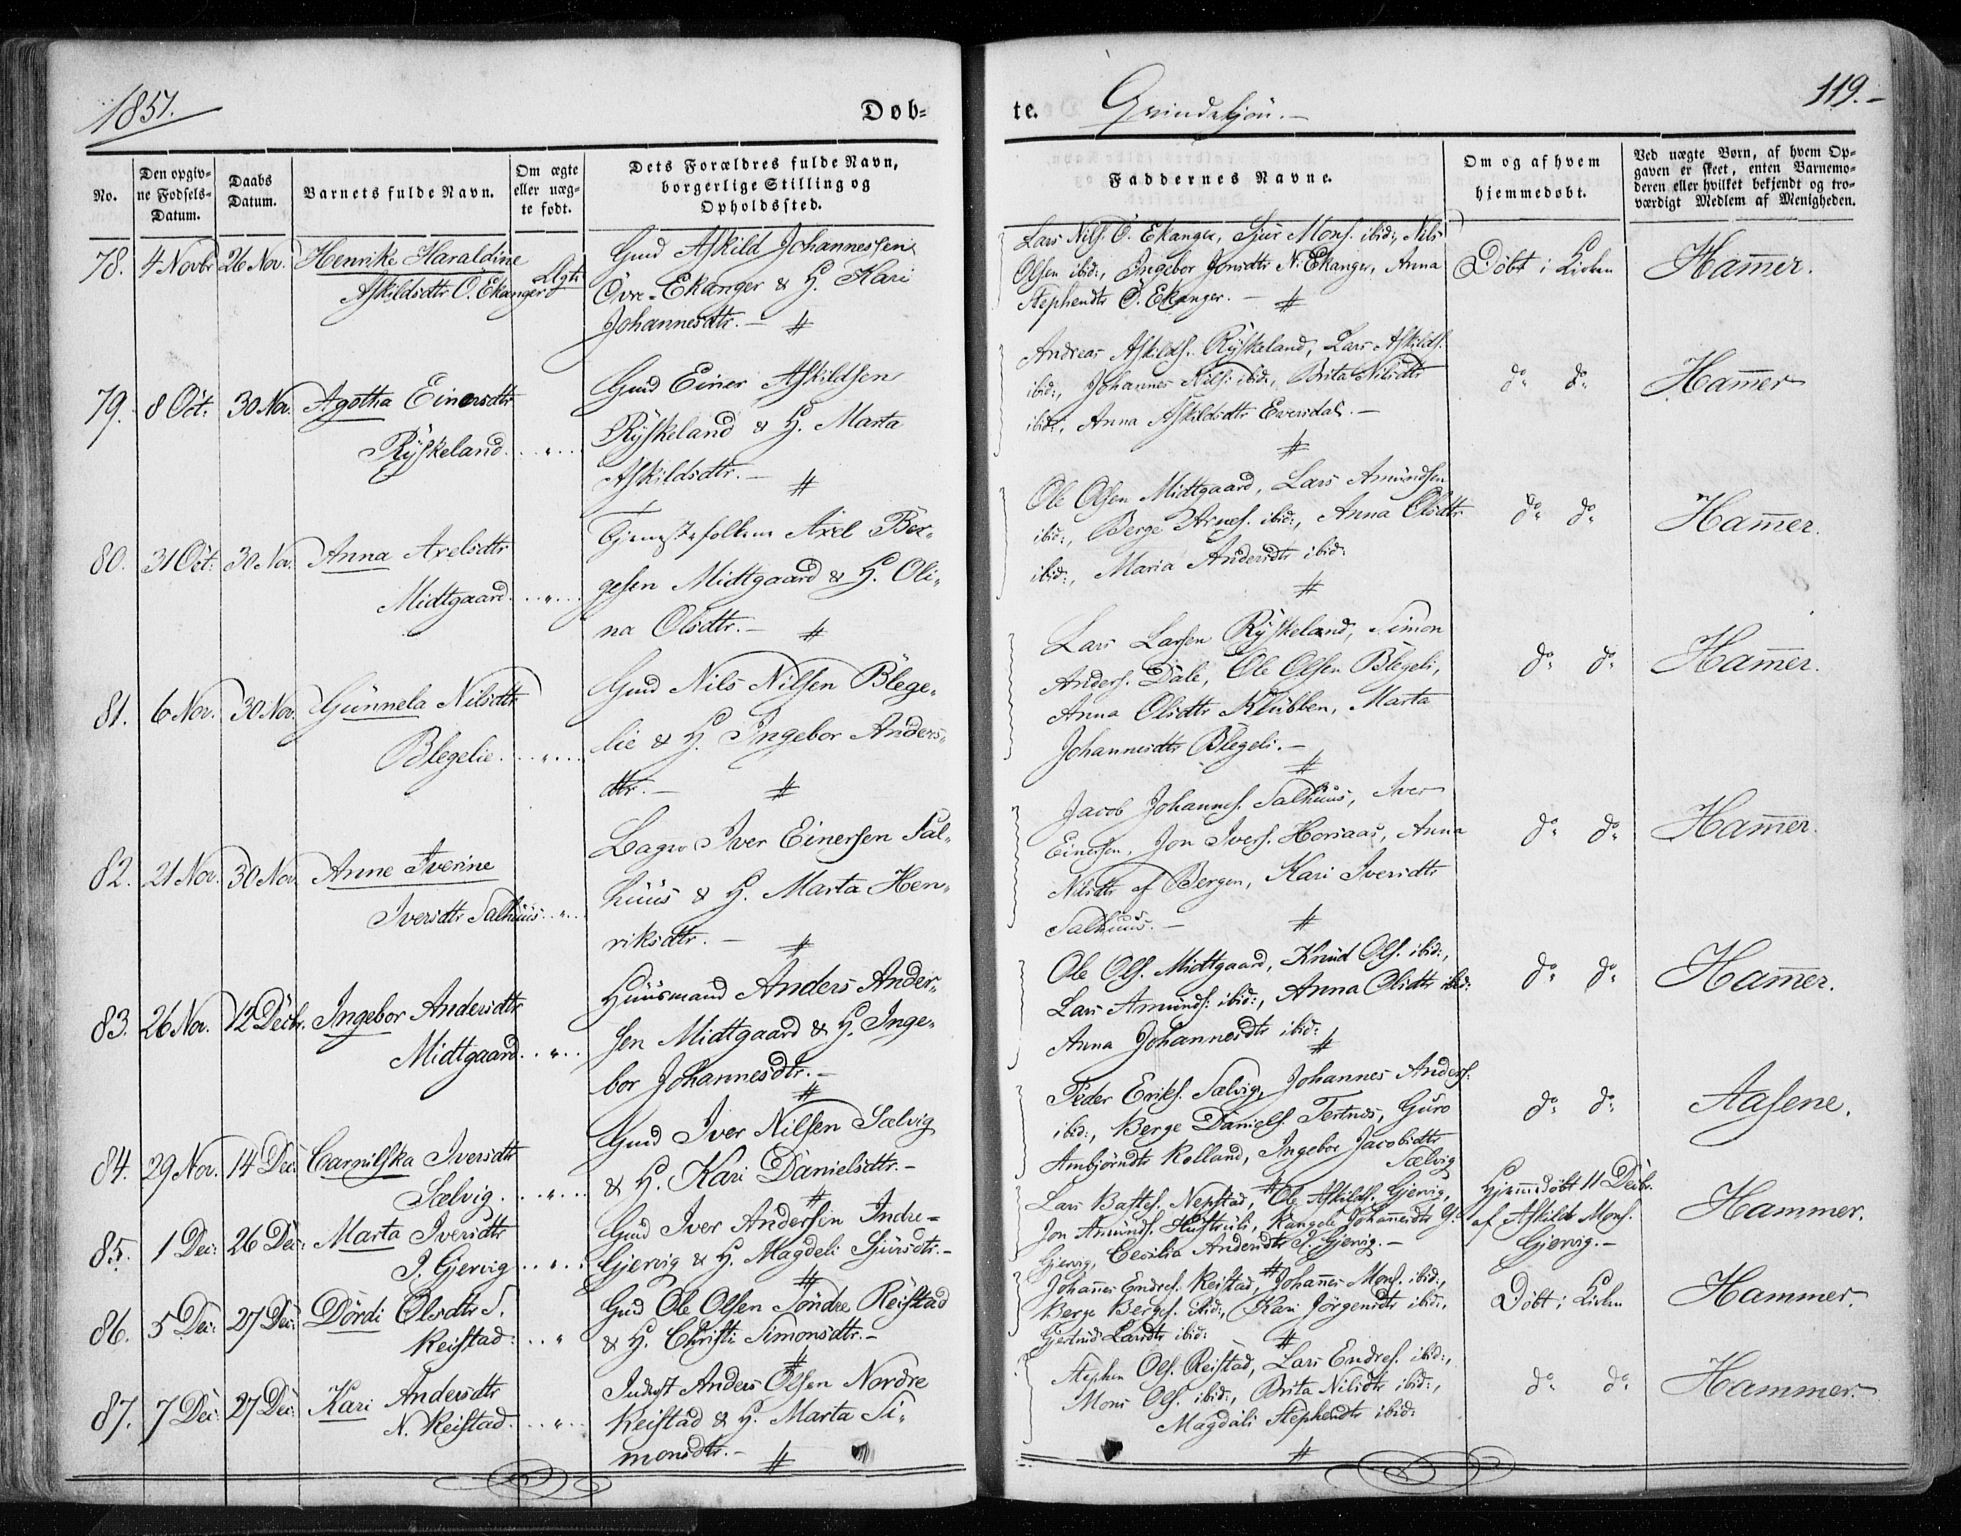 1851.
Døb-
te.
Qvindekjön.
119.
No.
Den opgiv-
ne Fødsels-
Datum.
Daabs
Datum.
Barnets fulde Navn.
Om ægte
eller uæg-
te født.
Dets Forældres fulde Navn,
borgerlige Stilling og
Opholdssted.
Faddernes Navne.
Om og af hvem
hjemmedøbt.
Ved uægte Børn, af hvem Op-
gaven er skeet, enten Barnemo-
deren eller hvilket bekjendt og tro-
værdigt Medlem af Menigheden.
78. 4 Novbr 26 Nov. Henrike Haraldine
Askildsdtr Ö. Ekanger Ægte
Gmd Askild Johannessen
Övre-Ekanger & H. Kari
Johannesdtr. –
Lars Nils. Ö. Ekanger, Sjur Mons. ibid:, Nils
Olsen ibid:, Ingebor Jonsdtr N. Ekanger, Anna
Stephensdtr Ö. Ekanger. –
Döbt i Kirken
Ham̄er.
79. 8 Oct: 30 Nov. Agatha Einersdtr
Ryskeland. . . " . .
Gmd Einer Askildsen
Ryskeland & H. Marta
Askildsdtr. –
Andreas Askilds. Ryskeland, Lars Askilds.
ibid:, Johannes Nils: ibid:, Brita Nilsdtr
ibid:, Anna Askildsdtr Eversdal. –
do do
Ham̄er
80. 31 Oct: 30 Nov. Anna Axelsdtr
Midtgaard. . . " . .
Tjenestefolkene Axel Ber-
gesen Midtgaard & H. Oli-
na Olsdtr. –
Ole Olsen Midtgaard, Lars Amundsen
ibid:, Berge Arnes. ibid:, Anna Olsdtr
ibid:, Maria Andersdtr ibid:
do do
Ham̄er.
81. 6 Nov. 30 Nov. Gunnela Nilsdtr
Blegelie. . . " . .
Gmd Nils Nilsen Blege-
lie & H. Ingebor Anders-
dtr. –
Lars Larsen Ryskeland, Simon
Anders. Dale, Ole Olsen Blegeli,
Anna Olsdtr Klubben, Marta
Johannesdtr Blegeli. –
do do
Ham̄er.
82. 21 Nov. 30 Nov. Anne Iverine
Iversdtr Salhuus . . " . .
Iver Einersen Sal-
huus & H. Marta Hen-
riksdtr. –
Jacob Johannes. Salhuus, Iver
Einersen, Jon Ivers. Horsaas, Anna
Nilsdtr af Bergen, Kari Iversdtr
Salhuus. –
do do
Ham̄er.
83. 26 Nov. 12 Decbr. Ingebor Andersdtr
Midtgaard . . " . .
Huusmand Anders Ander-
sen Midtgaard & H. Inge-
bor Johannesdtr. –
Ole Ols. Midtgaard, Knud Ols. ibid:,
Lars Amunds: ibid:, Anna Olsdtr ibid:
Anna Johannesdtr ibid:
do do
Ham̄er.
84. 29 Nov. 14 Dec: Carnilska Iversdtr
Sælvig. . . " . .
Gmd Iver Nilsen Sælvig
& H. Kari Danielsdtr. –
Peder Eriks. Sælvig, Johannes Anders.
ibid:, Berge Daniels. Tertnes, Guro
Ambjörnsdtr Rolland, Ingebor Jacobsdtr
Sælvig
do do
Aasene.
85. 1 Dec: 26 Dec: Marta Iversdtr
I. Gjervig . . " . .
Gmd Iver Andersen Indre-
Gjervig & H. Magdeli Sjursdtr. –
Lars Bastes. Nepstad, Ole Askilds. Gjervig,
Jon Amunds. Johannesdtr Y.
Gjervig, Cecilia Andersdtr I. Gjervig. –
Hjem̄edöbt 11 Decbr.
af Askild Mons.
Gjervig. –
Hammer.
86. 5 Dec: 27 Dec: Dördi Olsdtr S.
Reistad. . . "
Gmd Ole Olsen Söndre Reistad
& H. Christi Simonsdtr. –
Johannes Endres. Reistad, Johannes Mons. ibid:,
Berge Berges. ibid:, Kari Jörgensdtr ibid:,
Gjertrud Larsdtr ibid:
Döbt i Kirken
Hammer.
87. 7 Dec: 27 Dec: Kari Andersdtr
N. Reistad. . . " . .
Inderst Anders Olsen Nordre
Reistad & H. Marta Si-
monsdtr. –
Stephen Ols. Reistad, Lars Endres. ibid:,
Mons Ols. ibid:, Brita Nilsdtr ibid:,
Magdali Stephensdtr ibid:
do do
Hammer.